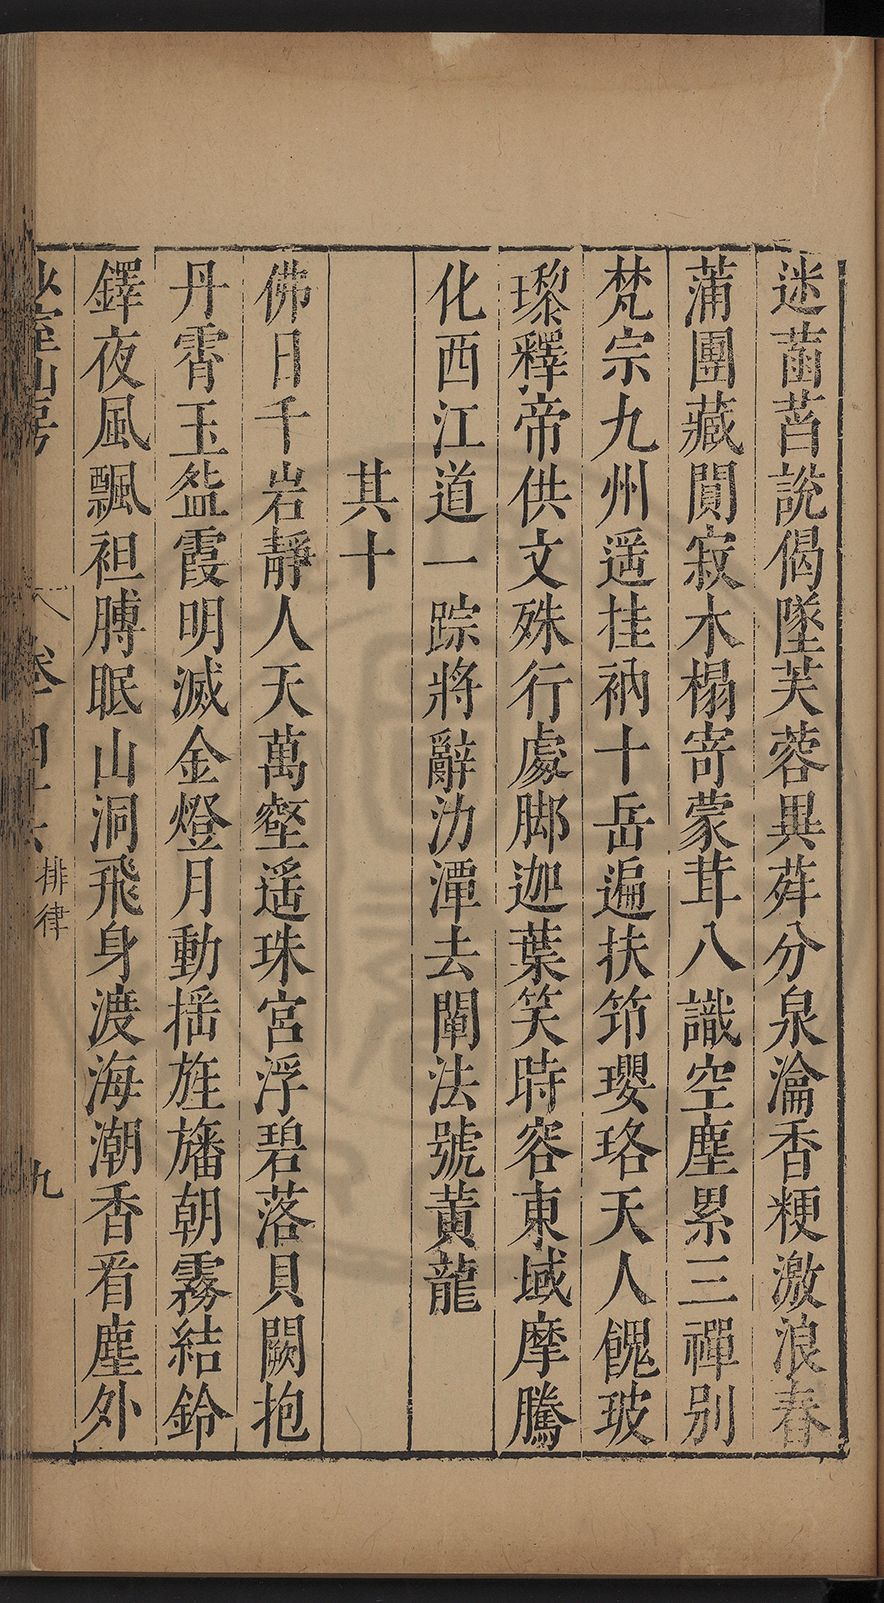 迷菡萏說偈墜芙蓉異荈分泉瀹香粳激浪舂
蒲團藏閴寂木榻寄蒙茸八識空塵累三禪別
梵宗九州遥挂衲十岳遍扶笻瓔珞天人餽玻
瓈釋帝供文殊行處脚迦葉笑時容東域摩騰
化西江道一踪將辭泐潭去闡法號黃龍
其十
佛日千岩靜人天萬壑遥珠宮浮碧落貝闕抱
丹霄玉盌霞明滅金燈月動揺旌旛朝霧結鈴
鐸夜風飄袒膊眠山洞飛身渡海潮香看塵外
少室山房 卷四十六 排律 九